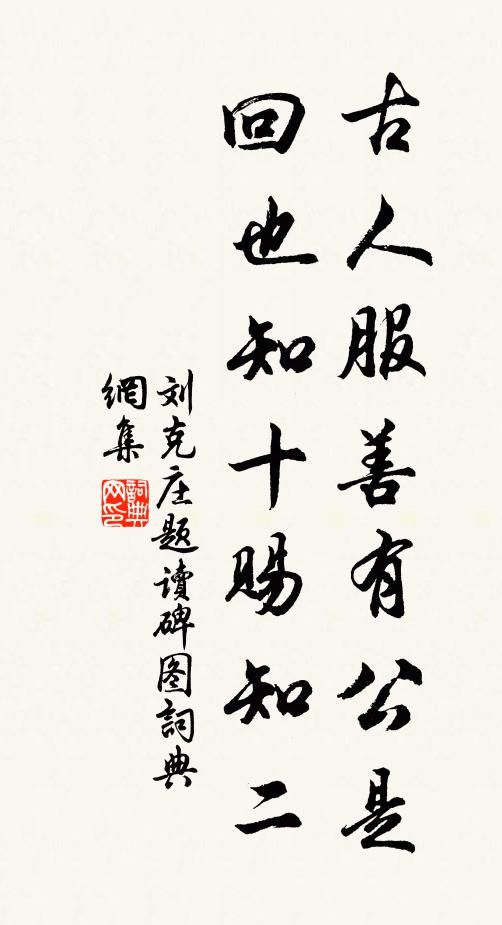 古人服善有公是
回也知十赐知二
刘克庄题读碑图詞典
網集
詞典
网印